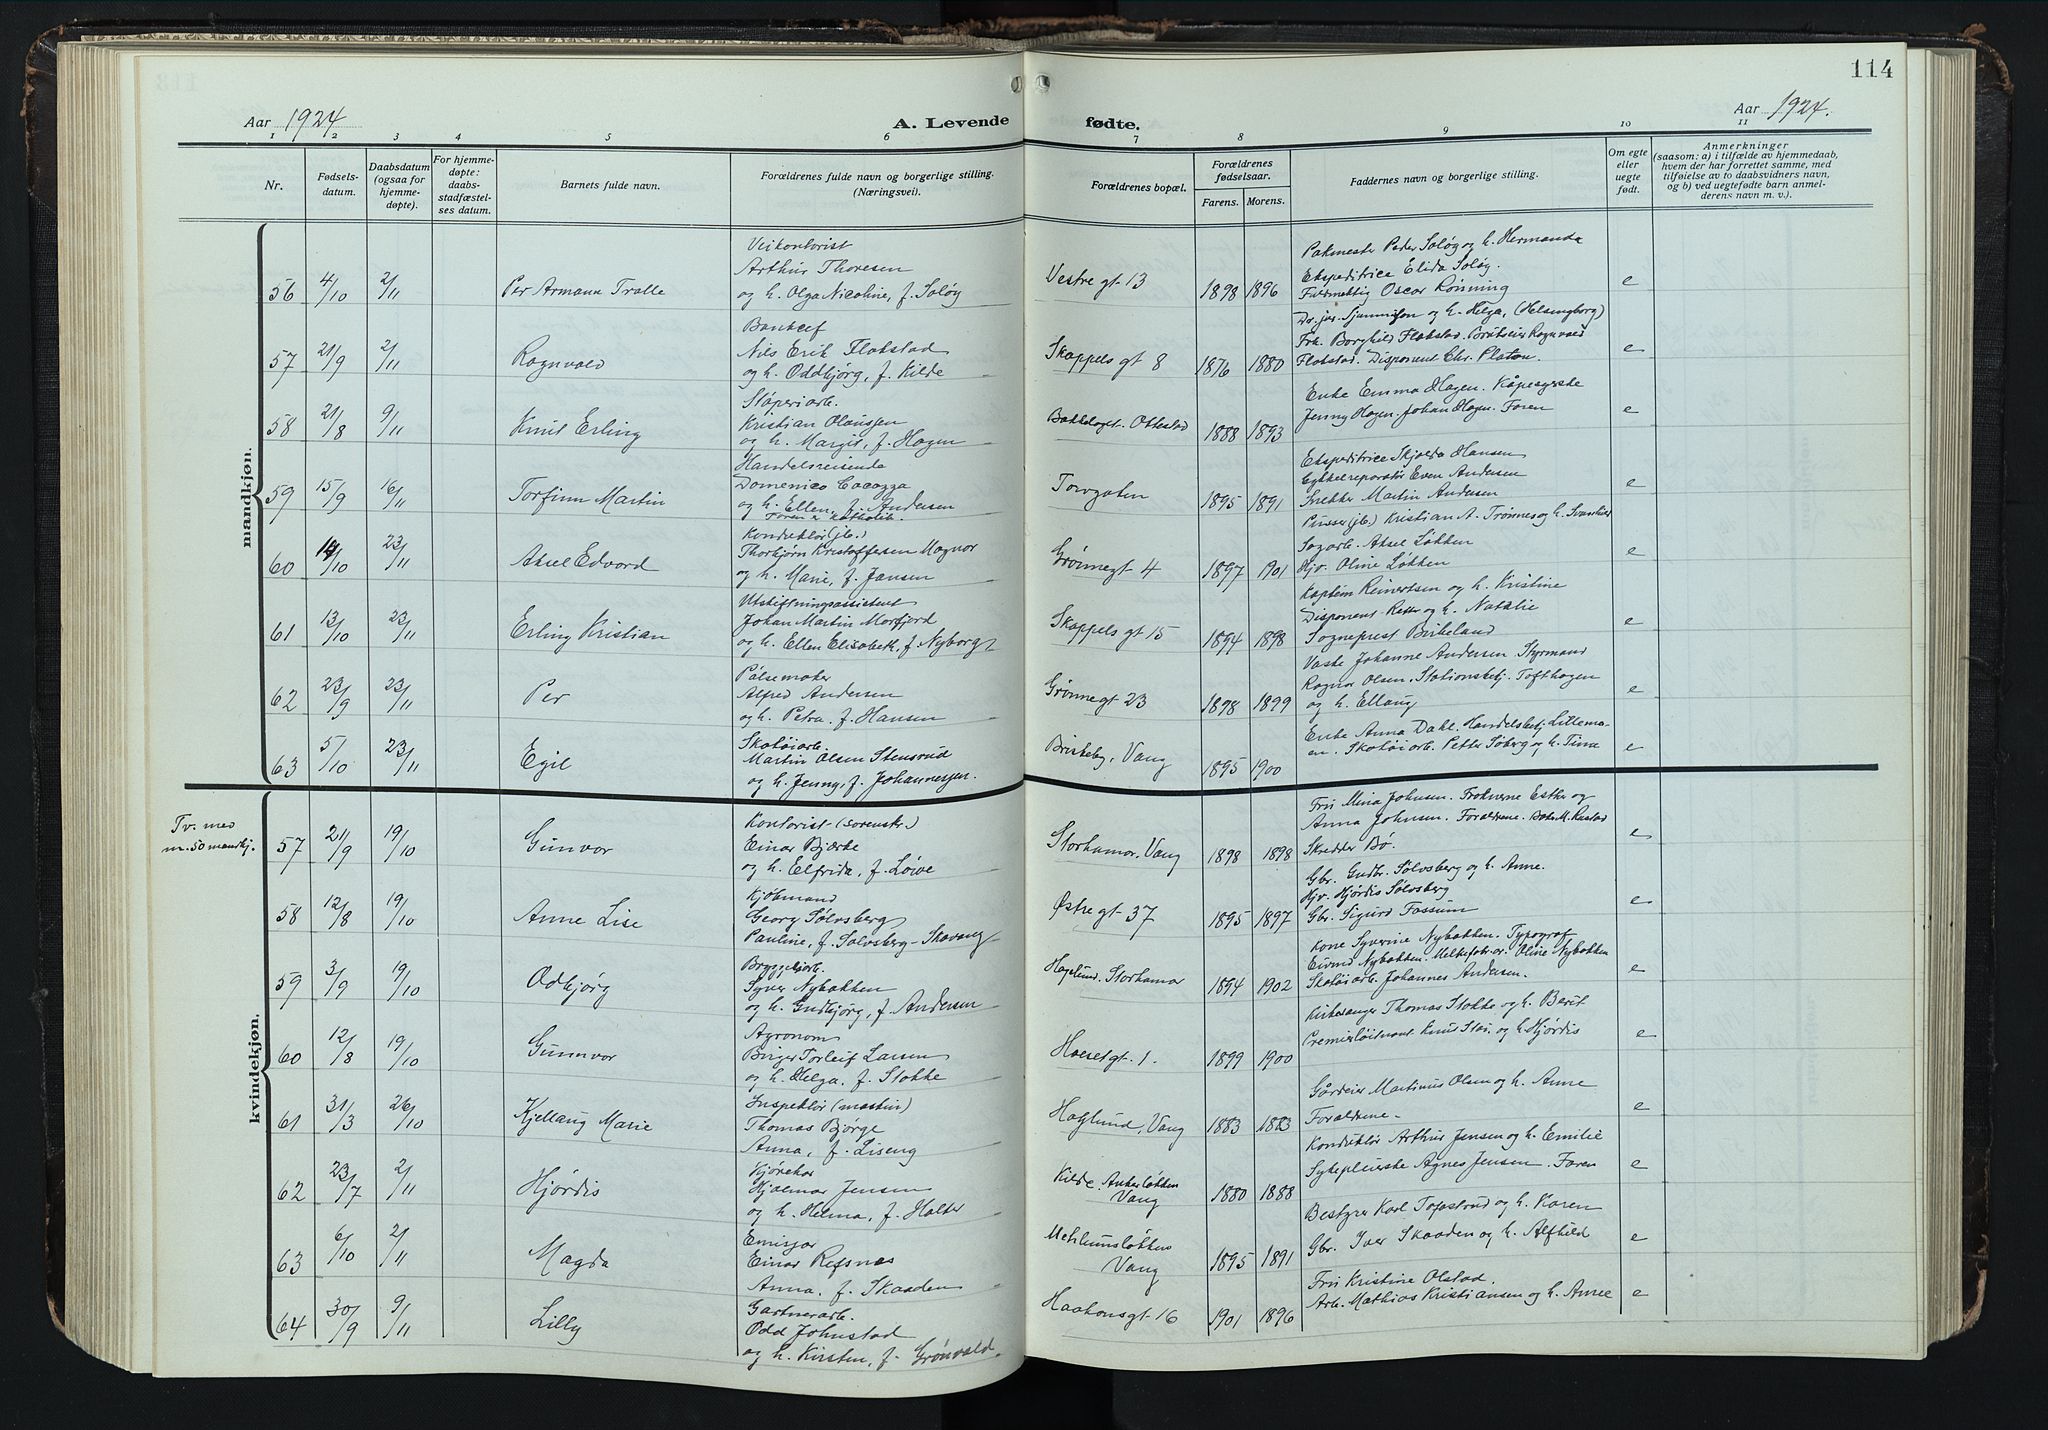 114
Aar 1924
A. Levende fødte.
Aar 1924.
1 2 3 4 5 6 7 8 9 10 11
Nr.
Fødsels-
datum.
Daabsdatum
(ogsaa for
hjemme-
døpte).
For hjemme-
døpte:
daabs-
stadfæstel-
ses datum.
Barnets fulde navn.
Forældrenes fulde navn og borgerlige stilling.
(Næringsvei).
Forældrenes bopæl.
Forældrenes
fødselsaar.
Farens. Morens.
Faddernes navn og borgerlige stilling.
Om egte
eller
uegte
født.
Anmerkninger
(saasom: a) i tilfælde av hjemmedaab,
hvem der har forrettet samme, med
tilføielse av to daabsvidners navn,
og b) ved uegtefødte barn anmel-
derens navn m. v.).
mandkjøn.
56 4/10 2/11 Per Armann Tralle
Veikontorist
Arthur Thoresen
og h. Olga Nicoline, f. Soløg
Vestre gt 13 1898 1896
Pakmester Peder Soløg og h. Hermanda
Ekspeditrice Elida Soløg.
Fuldmektig Oscar Rønning
e
57 21/9 2/11 Ragnvald
Bankchef
Niels Erik Flakstad
og h. Oddbjørg, f. Kilde
Skappels gt 8 1876 1880
Dr. jur. og h. Helga, (Helsingborg)
Frk. Borghild Flakstad. Brukseier Ragnvald
Flakstad. Disponent Chr. Platou.
e
58 21/8 9/11 Knut Erling
Støperiarb.
Kristian Olaussen
og h. Margit, f. Hagen
Bakkelaget. Ottestad 1888 1893
Enke Emma Hagen. Kåpesyerske
Jenny Hagen. Johan Hagen. Faren
e
59 15/9 16/11 Torfinn Martin
Handelsreisende
Domenico Cocozza
og h. Ellen, f. Andersen
Faren er katholik.
Torvgaten 1895 1891
Ekspeditrice Skjolda Hansen
Cykkelreparatør Even Andersen
Snekker Martin Andersen
e
60 14/10 23/11 Aksel Edvard
Konduktør (jb.)
Thorbjørn Kristoffersen Magnor
og h. Marie, f. Jansen
Grønnegt 4 1897 1901
Pusser (jb.) Kristian A. Trønnes og h.
Sagarb. Aksel Løkken
Hjv. Oline Løkken
e
61 13/10 23/11 Erling Kristian
Utskiftningsassistent
Johan Martin Morfjord
og h. Ellen Elisabeth, f. Nyborg
Skappels gt 15 1894 1898
Kaptein Reinertsen og h. Kristine
Disponent Retter og h. Natalie
Sogneprest Birkeland
e
62 23/9 23/11 Per
Pølsemaker
Alfred Andersen
og h. Petra. f. Hansen
Grønnegt 23 1898 1899
Vaske Johanne Andersen Styrmand
Ragnar Olsen. Stationsbetj. Tofthagen
og h. Ellaug
e
63 5/10 23/11 Egil
Skotøiarb.
Martin Olsen Stensrud
og h. Jenny, f. Johannessen.
Briskeby, Vang 1895 1900
Enke Anna Dahl. Handelsbetj. Lillemo-
en. Skotøiarb. Petter Søberg og h. Tina
e
kvindekjøn.
Tv. med
m. 50 mandkj.
57 21/9 19/10 Gunvor
Kontorist (sorenskr.)
Einar Bjerke
og h. Elfrida, f. Løwe
Storhamar, Vang 1898 1898
Fru Mina Johnsen. Frøknerne Esther og
Anna Johnsen. Foraldrene.
Skredder Bø.
e
58 12/8 19/10 Anne Lise
Kjøbmand
Georg Sølvsberg
Pauline, f. Sølvsberg-Skavang
Østre gt 37 1895 1897
Gbr. Gudbr. Sølvsberg og h. Anne.
Hjv. Hjørdis Sølvsberg
Gbr. Sigurd Fossum
e
59 3/9 19/10 Odbjørg
Bryggeriarb.
Syver Nybakken
og h. Gudbjørg, f. Andersen
Haglund. Storhamar 1894 1902
Kone Syverine Nybakken. Typograf
Eivind Nybakken. Oline Nybakken
Skotøiarb. Johannes Andersen.
e
60 12/8 19/10 Gunnvor
Agronom
Birger Torleif Larsen
og h. Helga. f. Stokke
Holsetgt. 1. 1899 1900
Kirkesanger Thomas Stokke og h. Berit
Premierløitnant Knut Stai. og h. Hjørdis
e
61 31/3 26/10 Kjellaug Marie
Inspektør (martin)
Thomas Bjørge
Anna, f. Liseng
Haglund, Vang 1883 1883
Gårdeier Martinus Olsen og h. Anne
Foraldrene.
e
62 23/7 2/11 Hjørdis
Kjørekar
Hjalmar Jensen
og h. Helma, f. Halter
Kilde. Ankerløkken
Vang
1880 1888
Konduktør Arthur Jensen og h. Emilie
Sykepleierske Agnes Jensen. Faren
e
63 6/10 2/11 Magda
Emissær
Einar Refsnes
Anna. f. Skaaden
Mehlumsløkken
Vang
1895 1891
Bestyrer Karl Tofastrud og h. Karen
Gbr. Iver Skaaden og h. Alfhild
e
64 30/9 9/11 Lilly
Gartnerarb.
Odd Johnstad
og h. Kirsten, f. Grønvold.
Haakonsgt 16 1901 1896
Fru Kristine Olstad.
Arb. Mathias Kristiansen og h. Anne
e